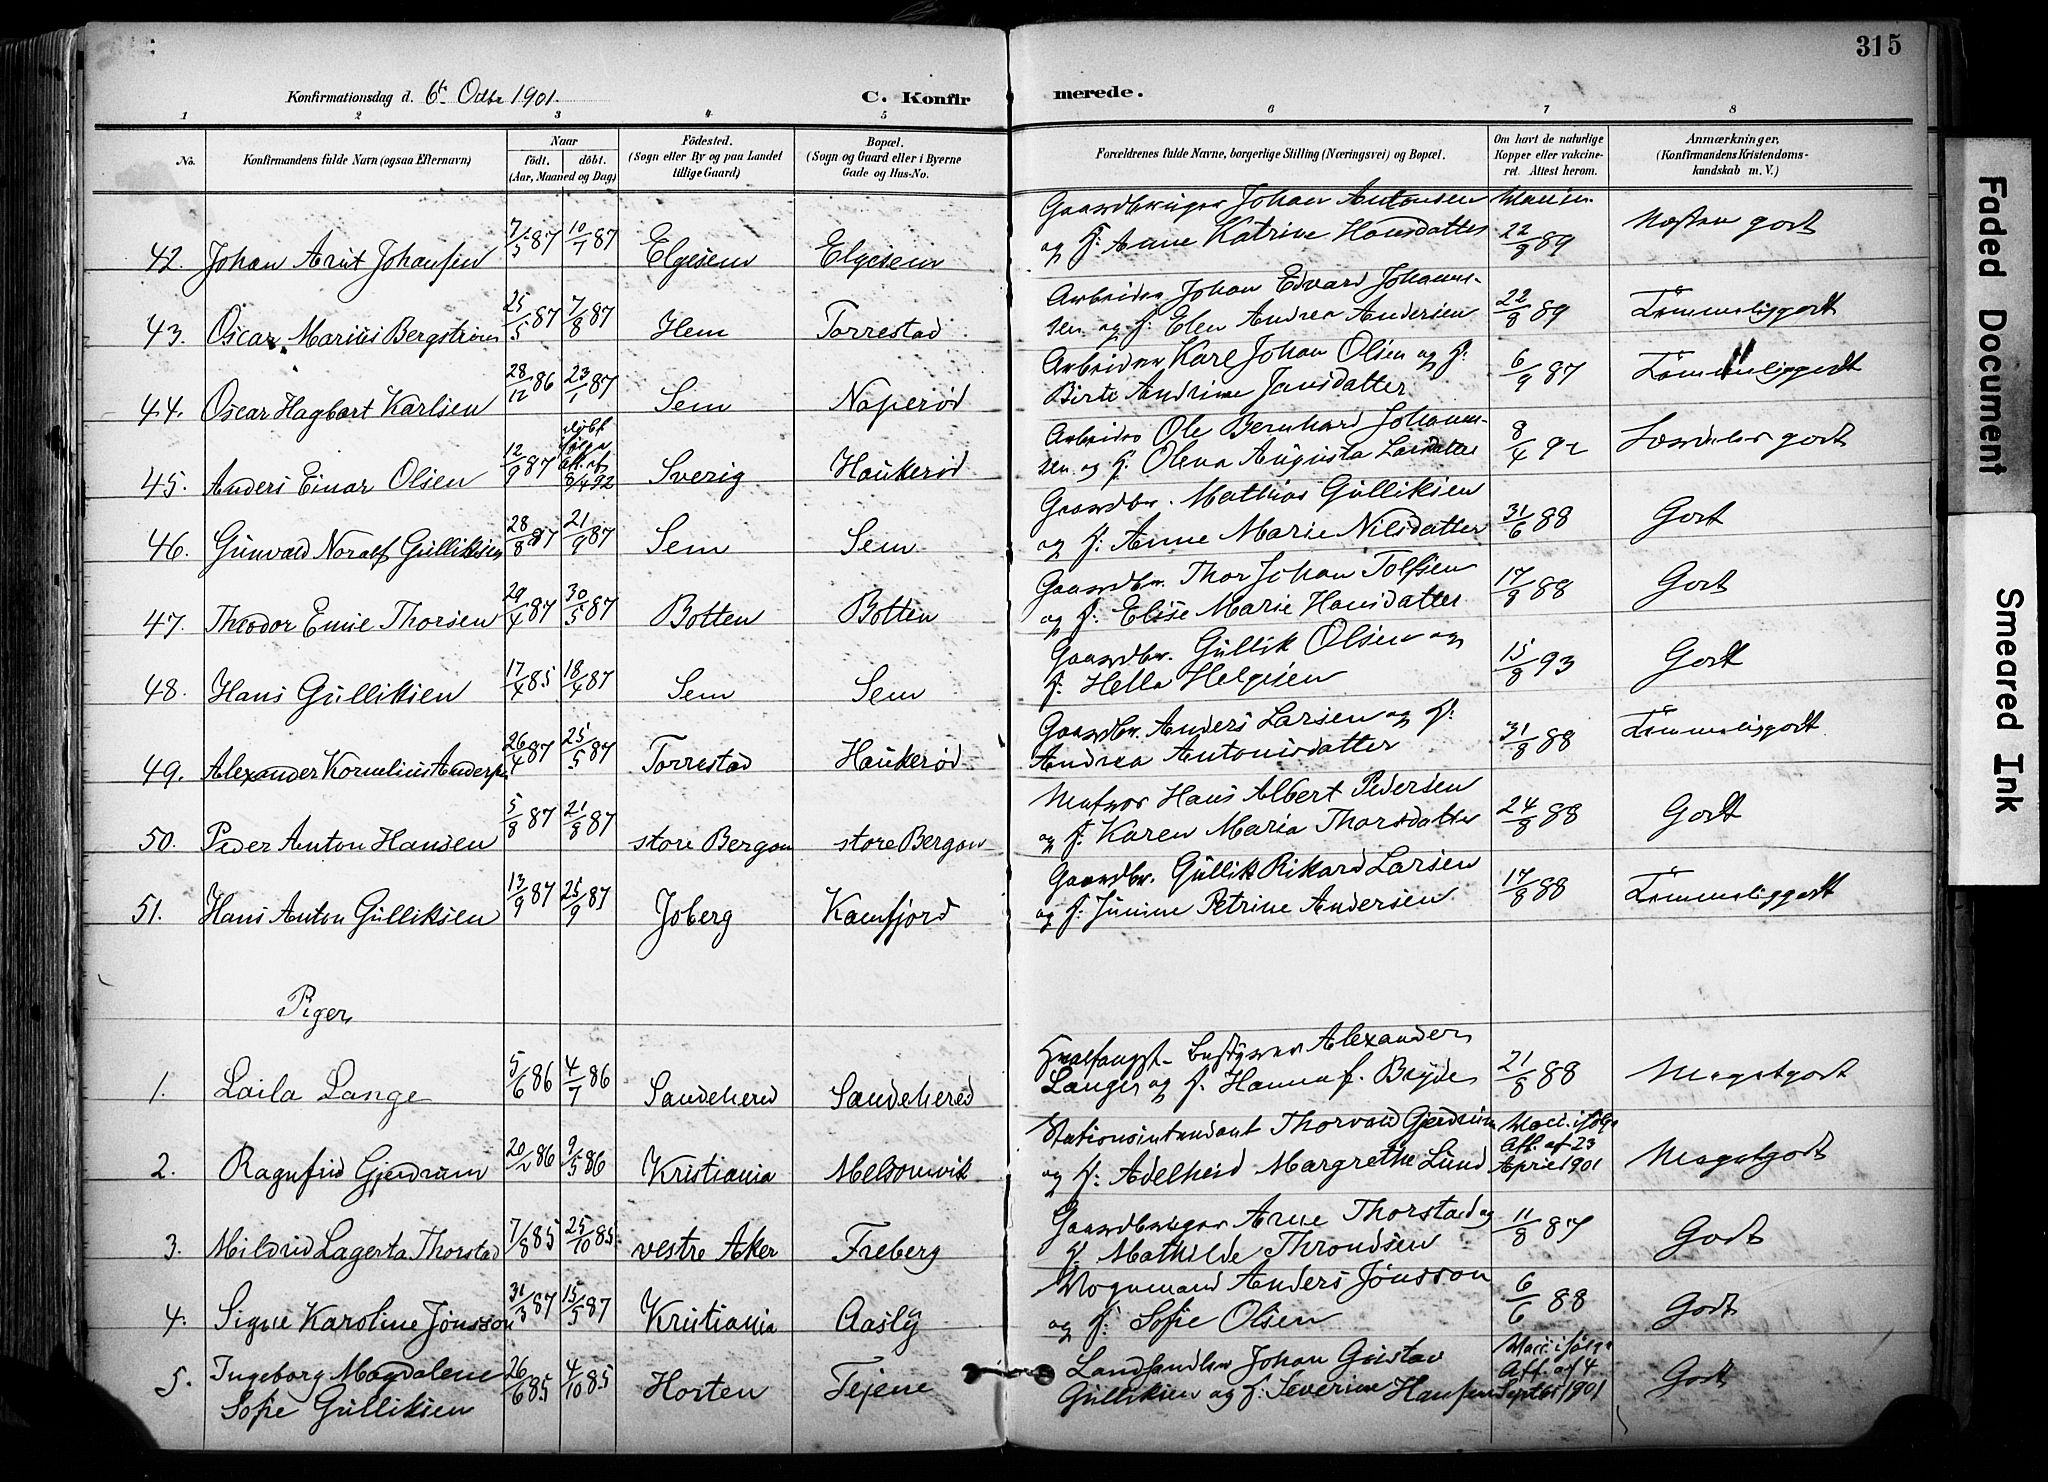 315
Konfirmationsdag d. 6te Octbr 1901.
C. Konfirmerede.
1 2 3 4 5 6 7 8
No. Konfirmandens fulde Navn (ogsaa Efternavn) Naar født. døbt. (Aar, Maaned og Dag) Fødested. (Sogn eller By og paa Landet tillige Gaard) Bopæl. (Sogn og Gaard eller i Byerne Gade og Hus-No. Forældrenes fulde Navne, borgerlige Stilling (Næringsvei) og Bopæl. Om havt de naturlige Kopper eller vakcineret. Attest herom. Anmærkninger. (Konfirmandens Kristendomskundskab m. V.)
Gaardbruger Johan Antonsen
42. Johan Arnt Johansen 7/5 87 10/7 87 Elgesem Elgesem og H. Anne Katrine Hansdatter 22/8 89 Næsten godt
Arbeider Johan Edvard Johanns-
43. Oscar Marius Bergstrøm 25/5 87 7/8 87 Hem Torrestad sen og H. Elen Andrea Andersen 22/8 89 Temmelig godt
Arbeider Karl Johan Olsen og H.
44. Oscar Hagbart Karlsen 28/12 86 23/1 87 Sem Noperød Birte Andrine Jansdatter 6/9 87 Temmelig godt
Arbeider Ole Bernhard Johann-
45. Anders Einar Olsen 12/9 87 døbt ifølge Att. af 8/4 92 Sverig Haukerød sen og H. Olena Augusta Larsdatter 8/4 92 Særdeles godt
Gaardbr. Mathias Gulliksen
46. Gunvald Noralf Gulliksen 28/8 87 21/9 87 Sem Sem og H. Anne Marie Nilsdatter 31/6 88 Godt
Gaardbr. Thor Johan Tolfsen
47. Theodor Emil Thorsen 29/4 87 30/5 87 Botten Botten og H. Elise Marie Hansdatter 17/8 88 Godt
Gaardbr. Gullik Olsen og
48. Hans Gulliksen 17/4 85 18/4 87 Sem Sem H. Hella Helgesen 15/8 93 Godt
Gaardbr. Anders Larsen og H.
49. Alexander Kornelius Andersen 26/4 87 25/5 87 Torrestad Haukerød Andrea Antonisdatter 31/8 88 Temmelig godt
Hans Albert Pedersen
50. Peder Anton Hansen 5/8 87 21/8 87 store Bergan store Bergan og H. Karen Maria Thorsdatter 24/8 88 Godt
Gaardbr. Gullik Rikard Larsen
51. Hans Anton Gulliksen 13/9 87 25/9 87 Joberg Kamfjord og H. Jennine Petrine Andersen 17/8 88 Temmelig godt
Piger
Hvalfangst-Bestyrer Alexander
1. Laila Lange 5/6 86 4/7 86 Sandeherred Sandeherred Lange og H. Hanna f. Bryde 21/8 88 Meget godt
Stationsintendant Thorvald Gjerdrum
2. Ragnfrid Gjerdrum 20/2 86 9/5 86 Kristiania Melsomvik og H. Adelheid Margrethe Lund Vacc. ifølge Att. af 23 April 1901 Meget godt
Gaardbruger Arne Thorstad og
3. Mildrid Lagerta Thorstad 7/8 85 25/10 85 vestre Aker Freberg H. Mathilde Throndsen 11/8 87 Godt
Vognmand Anders Jönsson
4. Signe Karoline Jönsson 31/3 87 15/5 87 Kristiania Aasly og H. Sofie Olsen 6/6 88 Godt
5. Ingeborg Magdalene Sofie Gulliksen 26/6 85 4/10 85 Horten Fejene Landhandler Johan Gustav Gulliksen og H. Severine Hansen Vacc. ifølge Att. af 4 Septbr 1901 Godt
Faded Document
Smeared Ink